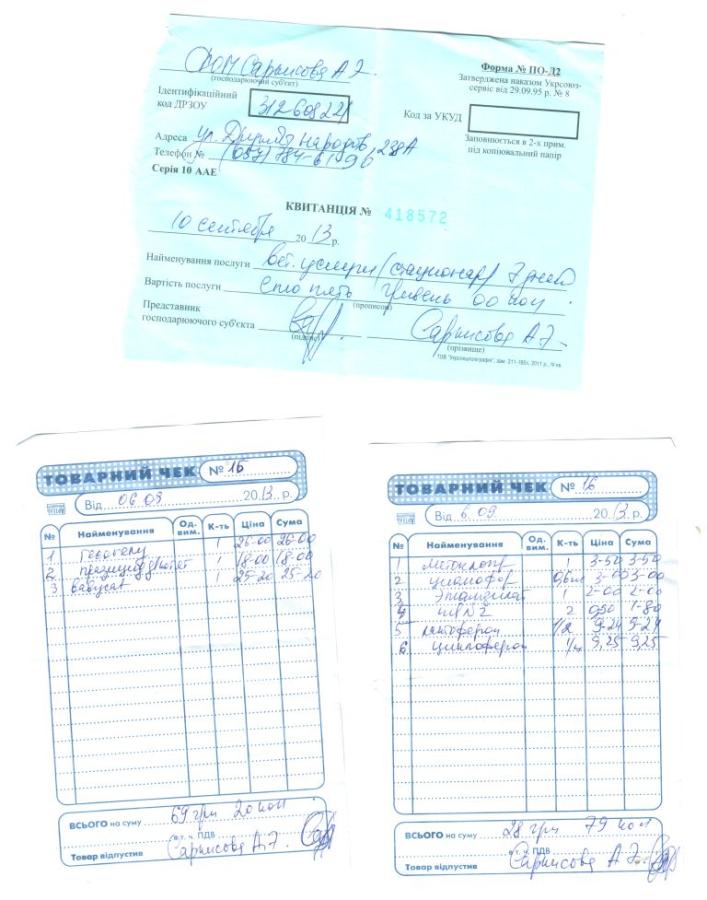 ФОП Саркисова А Э.
(господарюючий суб'єкт)
Ідентифікаційний
код ДРЗОУ
Адреса ул. Дружбы народов, 238А
Телефон № (057) 784-61-96
Серія 10 ААЕ
Форма № ПО-Д2
Затверджена наказом Укрсоюз-
сервіс від 29.09.95 р. № 8
Код за УКУД
Заповнюється в 2-х прим.
під копіювальний папір
КВИТАНЦІЯ № 418572
10 сентября 2013 р.
Найменування послуги вет. услуги (стационар) 7 дней
Вартість послуги сто пять гривень 00 коп.
(прописом)
Представник
господарюючого суб'єкта Саркисова А Э.
(підпис) (прізвище)
ТОВАРНИЙ ЧЕК № 15
Від 06 09 2013 р.
№ Найменування Од. вим. К-ть Ціна Сума
1 1 26-00 26-00
2 1 18-00 18-00
3 1 25-20 25-20
ВСЬОГО на суму 69 грн 20 коп
в т. ч. ПДВ
Товар відпустив Саркисова А Э.
ТОВАРНИЙ ЧЕК № 16
Від 6. 09 2013 р.
№ Найменування Од. вим. К-ть Ціна Сума
1 1 3-50 3-50
2 3-00 3-00
3 Этамзилат 1 2-00 2-00
4 2 0,90 1-80
5 1/2 9-24 9-24
6 циклоферон 9,25 9,25
ВСЬОГО на суму 28 грн 79 коп
в т. ч. ПДВ
Товар відпустив Саркисова А Э.